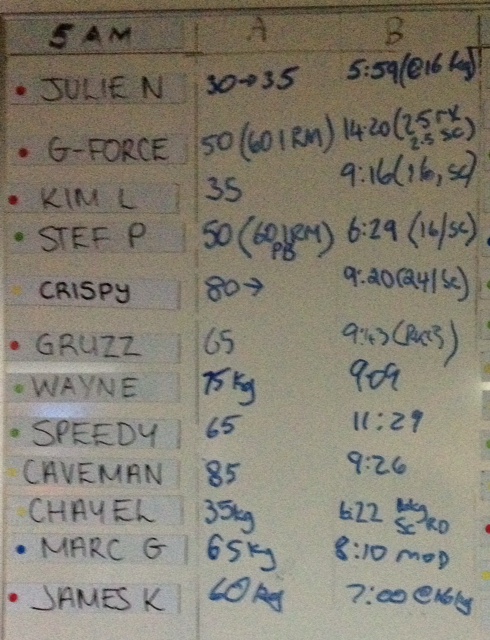 5 AM A B
JULIE N 30→35 5:59(@16 kg)
G-FORCE 50 (60 1RM) 14:20 (25 rx
2.5 sc)
KIM L 35 9:16 (16, sc)
STEF P 50 (60 1RM) 6:29 (16/sc)
PB
CRISPY 80→ 9:20 (24/sc)
GRUZZ 65 9:43
WAYNE 75kg 9:09
SPEEDY 65 11:29
CAVEMAN 85 9:26
CHAYEL 35kg 6:22
SC RD
MARC G 65kg 8:10 MOD
JAMES K 60kg 7:00 @16kg